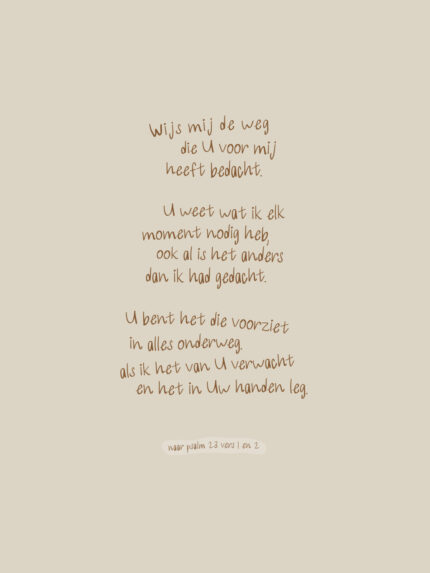 Wijs mij de weg
die U voor mij
heeft bedacht.
U weet wat ik elk
moment nodig heb,
ook al is het anders
dan ik had gedacht.
U bent het die voorziet
in alles onderweg.
als ik het van U verwacht
en het in Uw handen leg.
naar psalm 23 vers 1 en 2